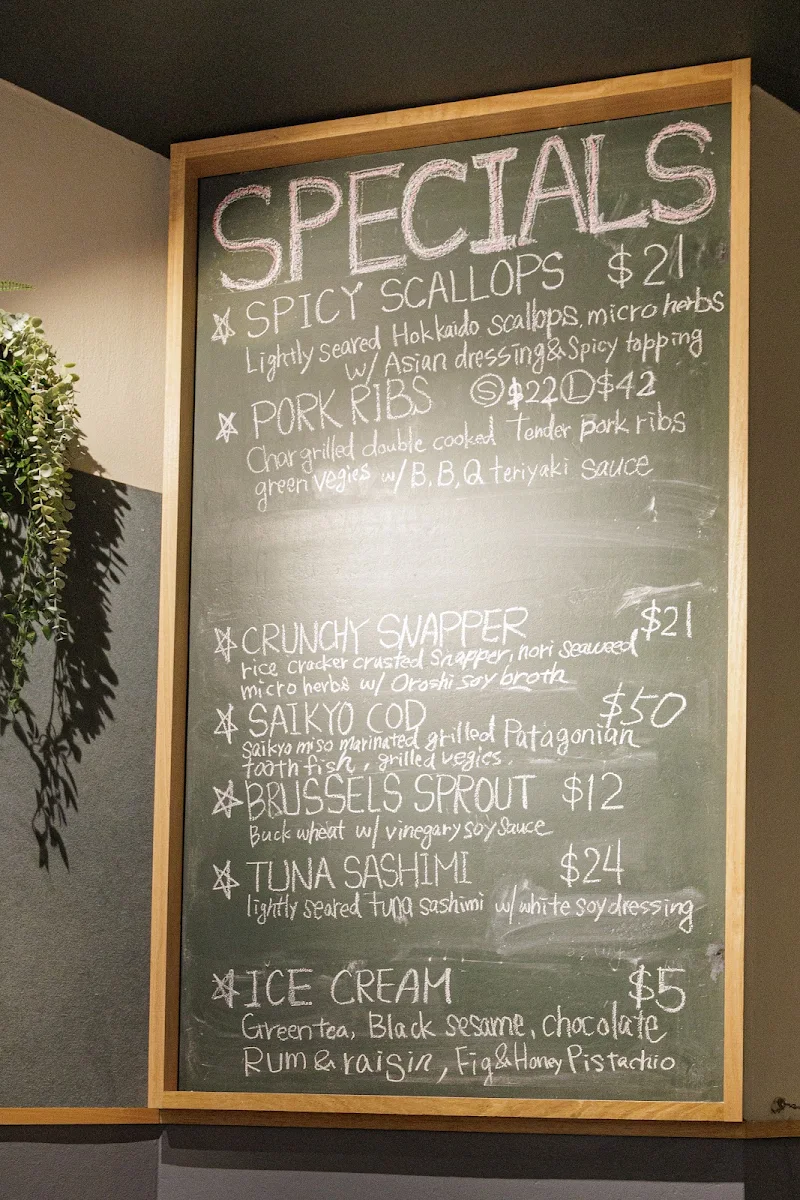 SPECIALS
SPICY SCALLOPS $21
Lightly seared Hokkaido scallops, micro herbs
w/ Asian dressing & Spicy topping
PORK RIBS Ⓢ$22 Ⓛ$42
Chargrilled double cooked Tender pork ribs
green vegies w/ B.B.Q teriyaki sauce
CRUNCHY SNAPPER $21
rice cracker crusted Snapper, nori seaweed
micro herbs w/ Oroshi soy broth
SAIKYO COD $50
Saikyo miso marinated grilled Patagonian
tooth fish, grilled vegies.
BRUSSELS SPROUT $12
Buck wheat w/ vinegary soy sauce
TUNA SASHIMI $24
lightly seared tuna sashimi w/ white soy dressing
ICE CREAM $5
Green tea, Black sesame, chocolate
Rum & raisin, Fig & Honey Pistachio